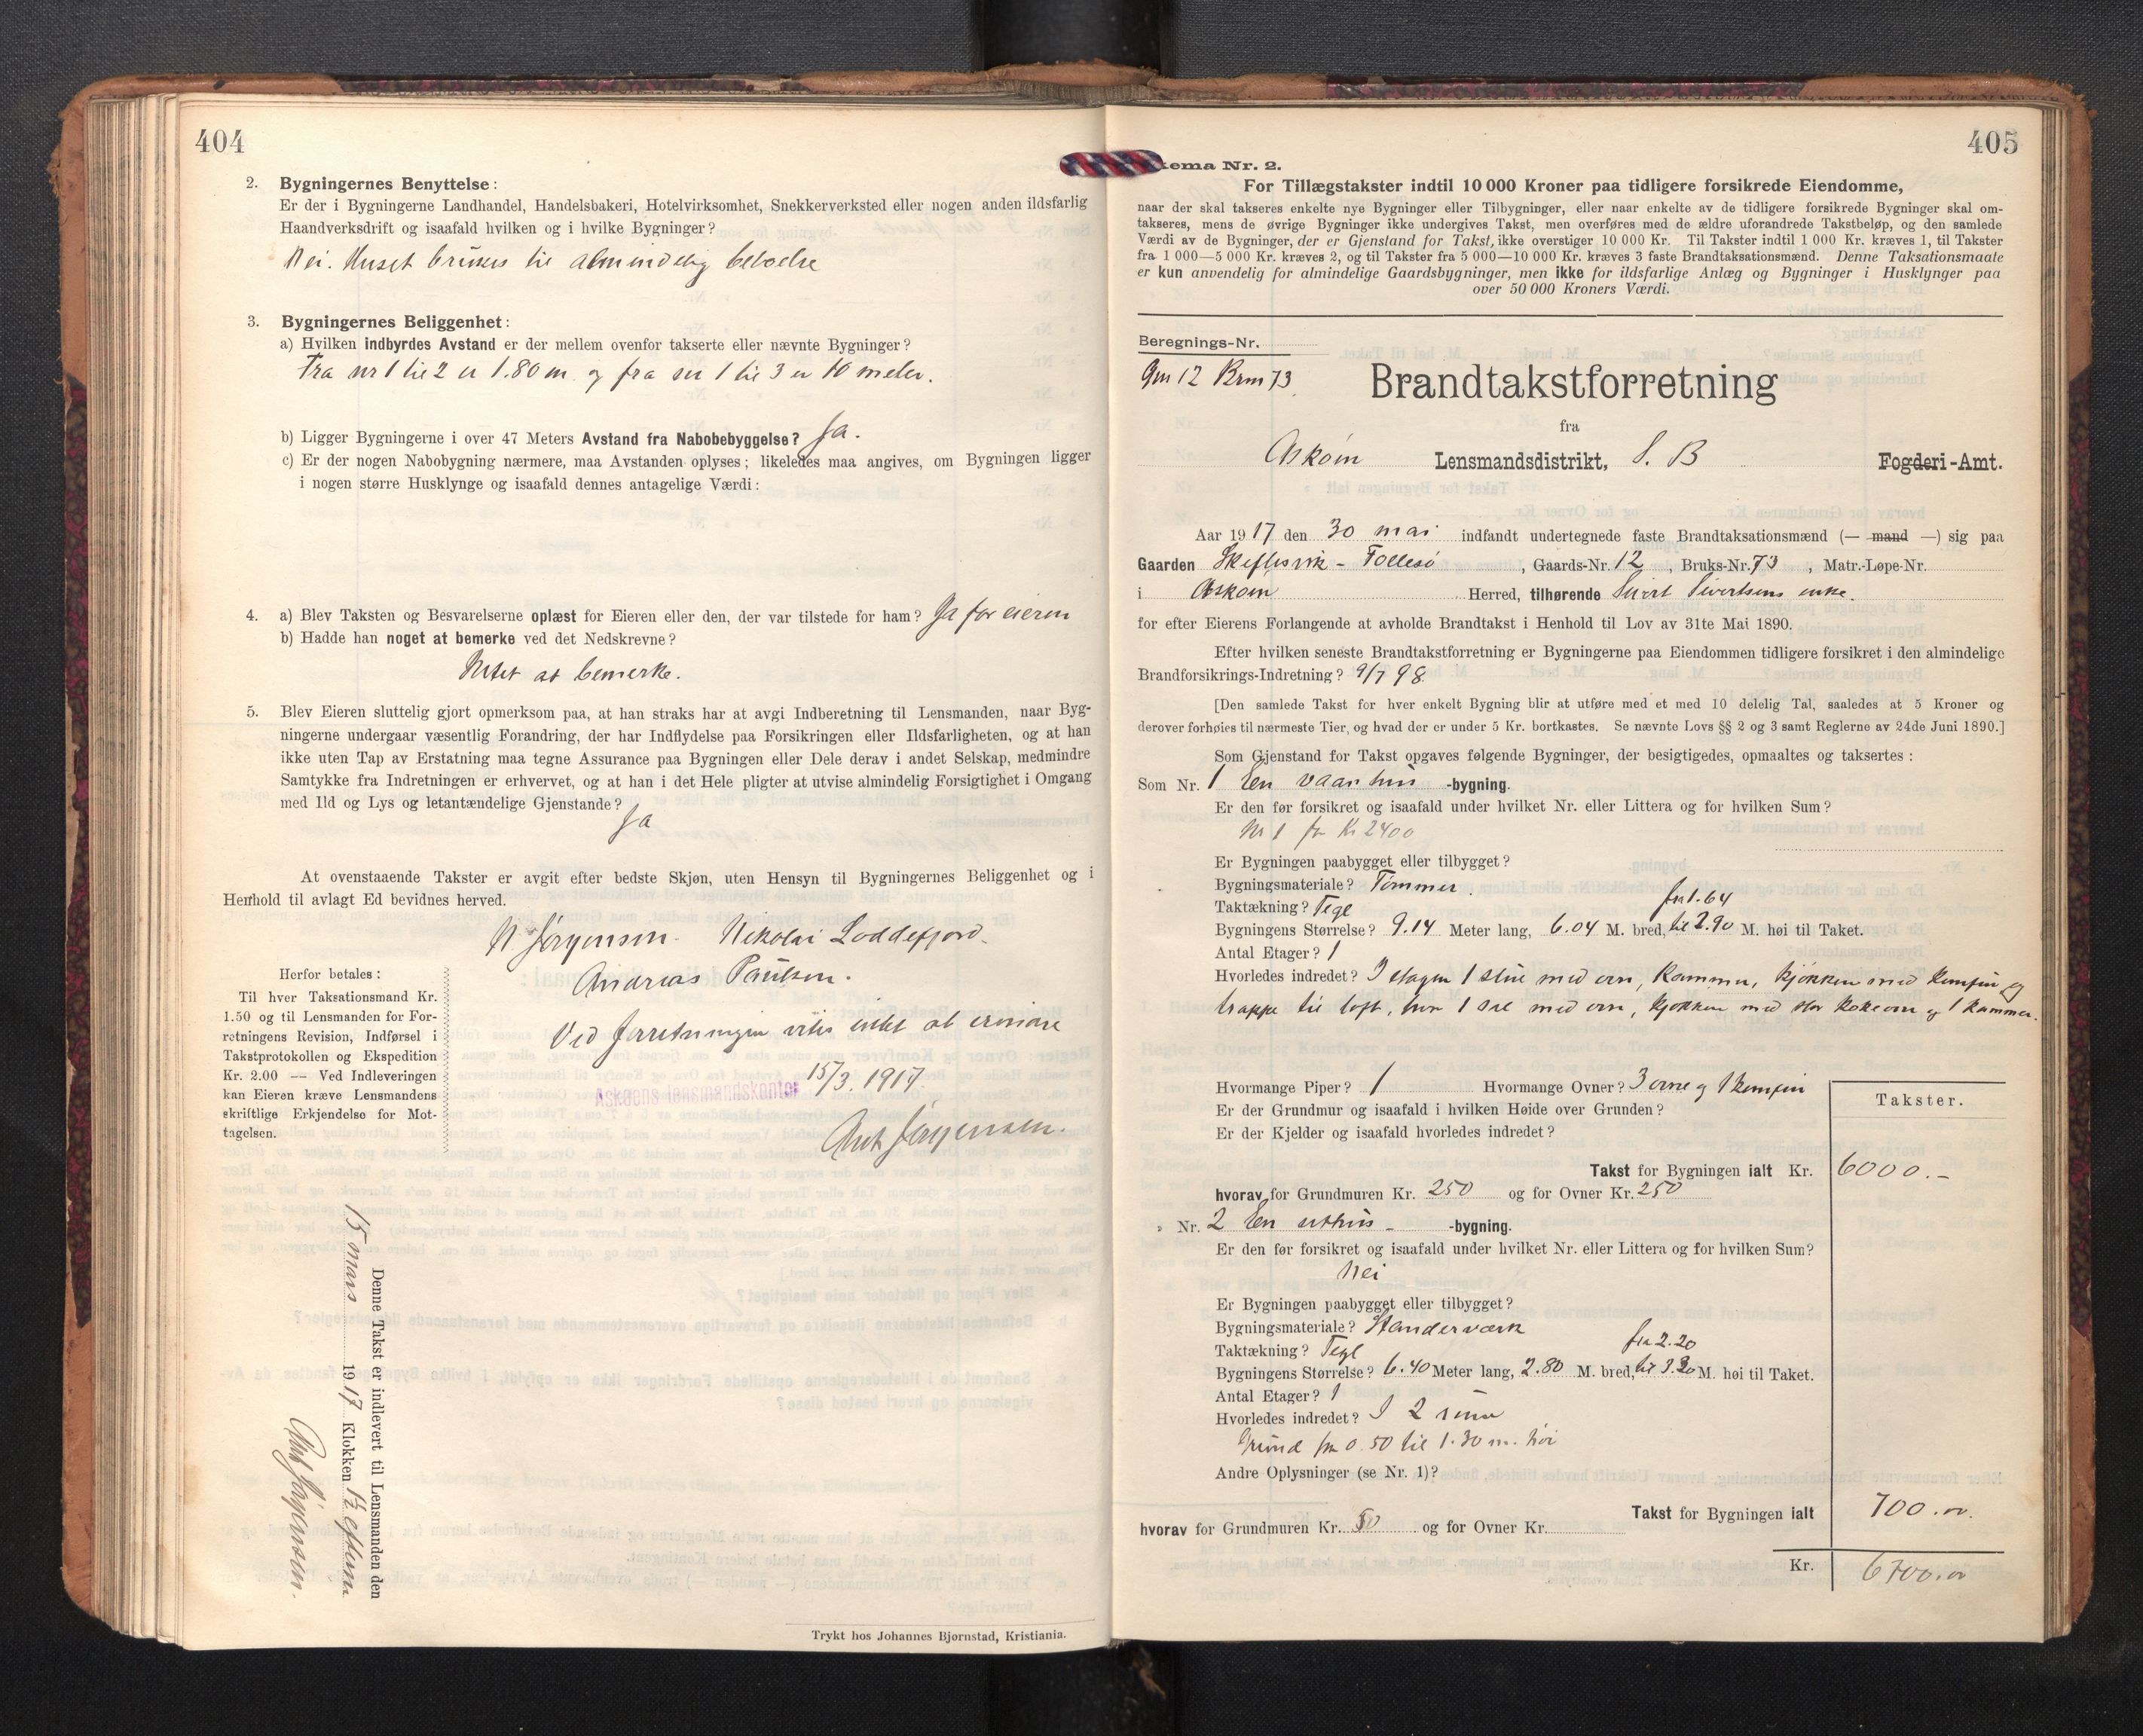 404
2. Bygningernes Benyttelse:
Er der i Bygningerne Landhandel, Handelsbakeri, Hotelvirksomhet, Snekkerverksted eller nogen anden ildsfarlig
Haandverksdrift og isaafald hvilken og i hvilke Bygninger?
Nei. Huset brukes til almindelig beboelse
3. Bygningernes Beliggenhet:
a) Hvilken indbyrdes Avstand er der mellem ovenfor takserte eller nævnte Bygninger?
Fra nr 1 til 2 er 1.80 m og fra nr 1 til 3 er 10 meter.
b) Ligger Bygningerne i over 47 Meters Avstand fra Nabobebyggelse? Ja.
c) Er der nogen Nabobygning nærmere, maa Avstanden oplyses; likeledes maa angives, om Bygningen ligger
i nogen større Husklynge og isaafald dennes antagelige Værdi:
4. a) Blev Taksten og Besvarelserne oplæst for Eieren eller den, der var tilstede for ham? Ja for eieren
b) Hadde han noget at bemerke ved det Nedskrevne?
Intet at bemerke.
5. Blev Eieren sluttelig gjort opmerksom paa, at han straks har at avgi Indberetning til Lensmanden, naar Byg-
ningerne undergaar væsentlig Forandring, der har Indflydelse paa Forsikringen eller Ildsfarligheten, og at han
ikke uten Tap av Erstatning maa tegne Assurance paa Bygningen eller Dele derav i andet Selskap, medmindre
Samtykke fra Indretningen er erhvervet, og at han i det Hele pligter at utvise almindelig Forsigtighet i Omgang
med Ild og Lys og letantændelige Gjenstande?
Ja
At ovenstaaende Takster er avgit efter bedste Skjøn, uten Hensyn til Bygningernes Beliggenhet og i
Henhold til avlagt Ed bevidnes herved.
N Jørgensen. Nikolai Loddefjord.
Andreas Paulsen.
Herfor betales:
Til hver Taksationsmand Kr.
1.50 og til Lensmanden for For-
retningens Revision, Indførsel i
Takstprotokollen og Ekspedition
Kr. 2.00 — Ved Indleveringen
kan Eieren kræve Lensmandens
skriftlige Erkjendelse for Mot-
tagelsen.
Ved forretningen vites intet at erindre
15/3. 1917
Askøens lensmandskontor
Ant Jørgensen.
Denne Takst er indlevert til Lensmanden den
15 mars 1917 Klokken 1½ efterm.
Ant Jørgensen.
Trykt hos Johannes Bjørnstad, Kristiania.
405
kema Nr. 2.
For Tillægstakster indtil 10 000 Kroner paa tidligere forsikrede Eiendomme,
naar der skal takseres enkelte nye Bygninger eller Tilbygninger, eller naar enkelte av de tidligere forsikrede Bygninger skal om-
takseres, mens de øvrige Bygninger ikke undergives Takst, men overføres med de ældre uforandrede Takstbeløp, og den samlede
Værdi av de Bygninger, der er Gjenstand for Takst, ikke overstiger 10 000 Kr. Til Takster indtil 1 000 Kr. kræves 1, til Takster
fra 1 000—5 000 Kr. kræves 2, og til Takster fra 5 000—10 000 Kr. kræves 3 faste Brandtaksationsmænd. Denne Taksationsmaate
er kun anvendelig for almindelige Gaardsbygninger, men ikke for ildsfarlige Anlæg og Bygninger i Husklynger paa
over 50 000 Kroners Værdi.
Beregnings-Nr.
Gnr 12 Brnr 73.
Brandtakstforretning
fra
Askøen Lensmandsdistrikt, S. B Fogderi-Amt.
Aar 1917 den 30 mai indfandt undertegnede faste Brandtaksationsmænd (— mand —) sig paa
Gaarden Skeflesvik - Follesø, Gaards-Nr. 12, Bruks-Nr. 73, Matr.-Løpe-Nr.
i Askøen Herred, tilhørende Sivert Sivertsens enke.
for efter Eierens Forlangende at avholde Brandtakst i Henhold til Lov av 31te Mai 1890.
Efter hvilken seneste Brandtakstforretning er Bygningerne paa Eiendommen tidligere forsikret i den almindelige
Brandforsikrings-Indretning? 9/7 98.
[Den samlede Takst for hver enkelt Bygning blir at utføre med et med 10 delelig Tal, saaledes at 5 Kroner og
derover forhøies til nærmeste Tier, og hvad der er under 5 Kr. bortkastes. Se nævnte Lovs §§ 2 og 3 samt Reglerne av 24de Juni 1890.]
Som Gjenstand for Takst opgaves følgende Bygninger, der besigtigedes, opmaaltes og taksertes:
Som Nr. 1 En vaanhus -bygning.
Er den før forsikret og isaafald under hvilket Nr. eller Littera og for hvilken Sum?
Nr 1 for Kr 2400
Er Bygningen paabygget eller tilbygget?
Bygningsmateriale? Tømmer.
Taktækning? Tegl
fra 1.64
Bygningens Størrelse? 9.14 Meter lang, 6.04 M. bred, til 2.90 M. høi til Taket.
Antal Etager? 1
Hvorledes indredet? I etagen 1 stue med ovn, kammer, kjøkken med komfur og
trappe til loft, hvor 1 sal med ovn, kjøkken med stor kokeovn og 1 kammer.
Hvormange Piper? 1 Hvormange Ovner? 3 ovne og 1 komfur
Er der Grundmur og isaafald i hvilken Høide over Grunden?
Er der Kjelder og isaafald hvorledes indredet?
Takster.
Takst for Bygningen ialt Kr. 6000.-
hvorav for Grundmuren Kr. 250 og for Ovner Kr. 250
" Nr. 2 En uthus -bygning.
Er den før forsikret og isaafald under hvilket Nr. eller Littera og for hvilken Sum?
Nei
Er Bygningen paabygget eller tilbygget?
Bygningsmateriale? Standerværk
Taktækning? Tegl
fra 2.20
Bygningens Størrelse? 6.40 Meter lang, 2.80 M. bred, til 3.20 M. høi til Taket.
Antal Etager? 1
Hvorledes indredet? I 2 rum
Grund fra 0.50 til 1.30 m. høi
Andre Oplysninger (se Nr. 1)?
Takst for Bygningen ialt 700.00.
hvorav for Grundmuren Kr. 50 og for Ovner Kr.
Kr. 6700.00